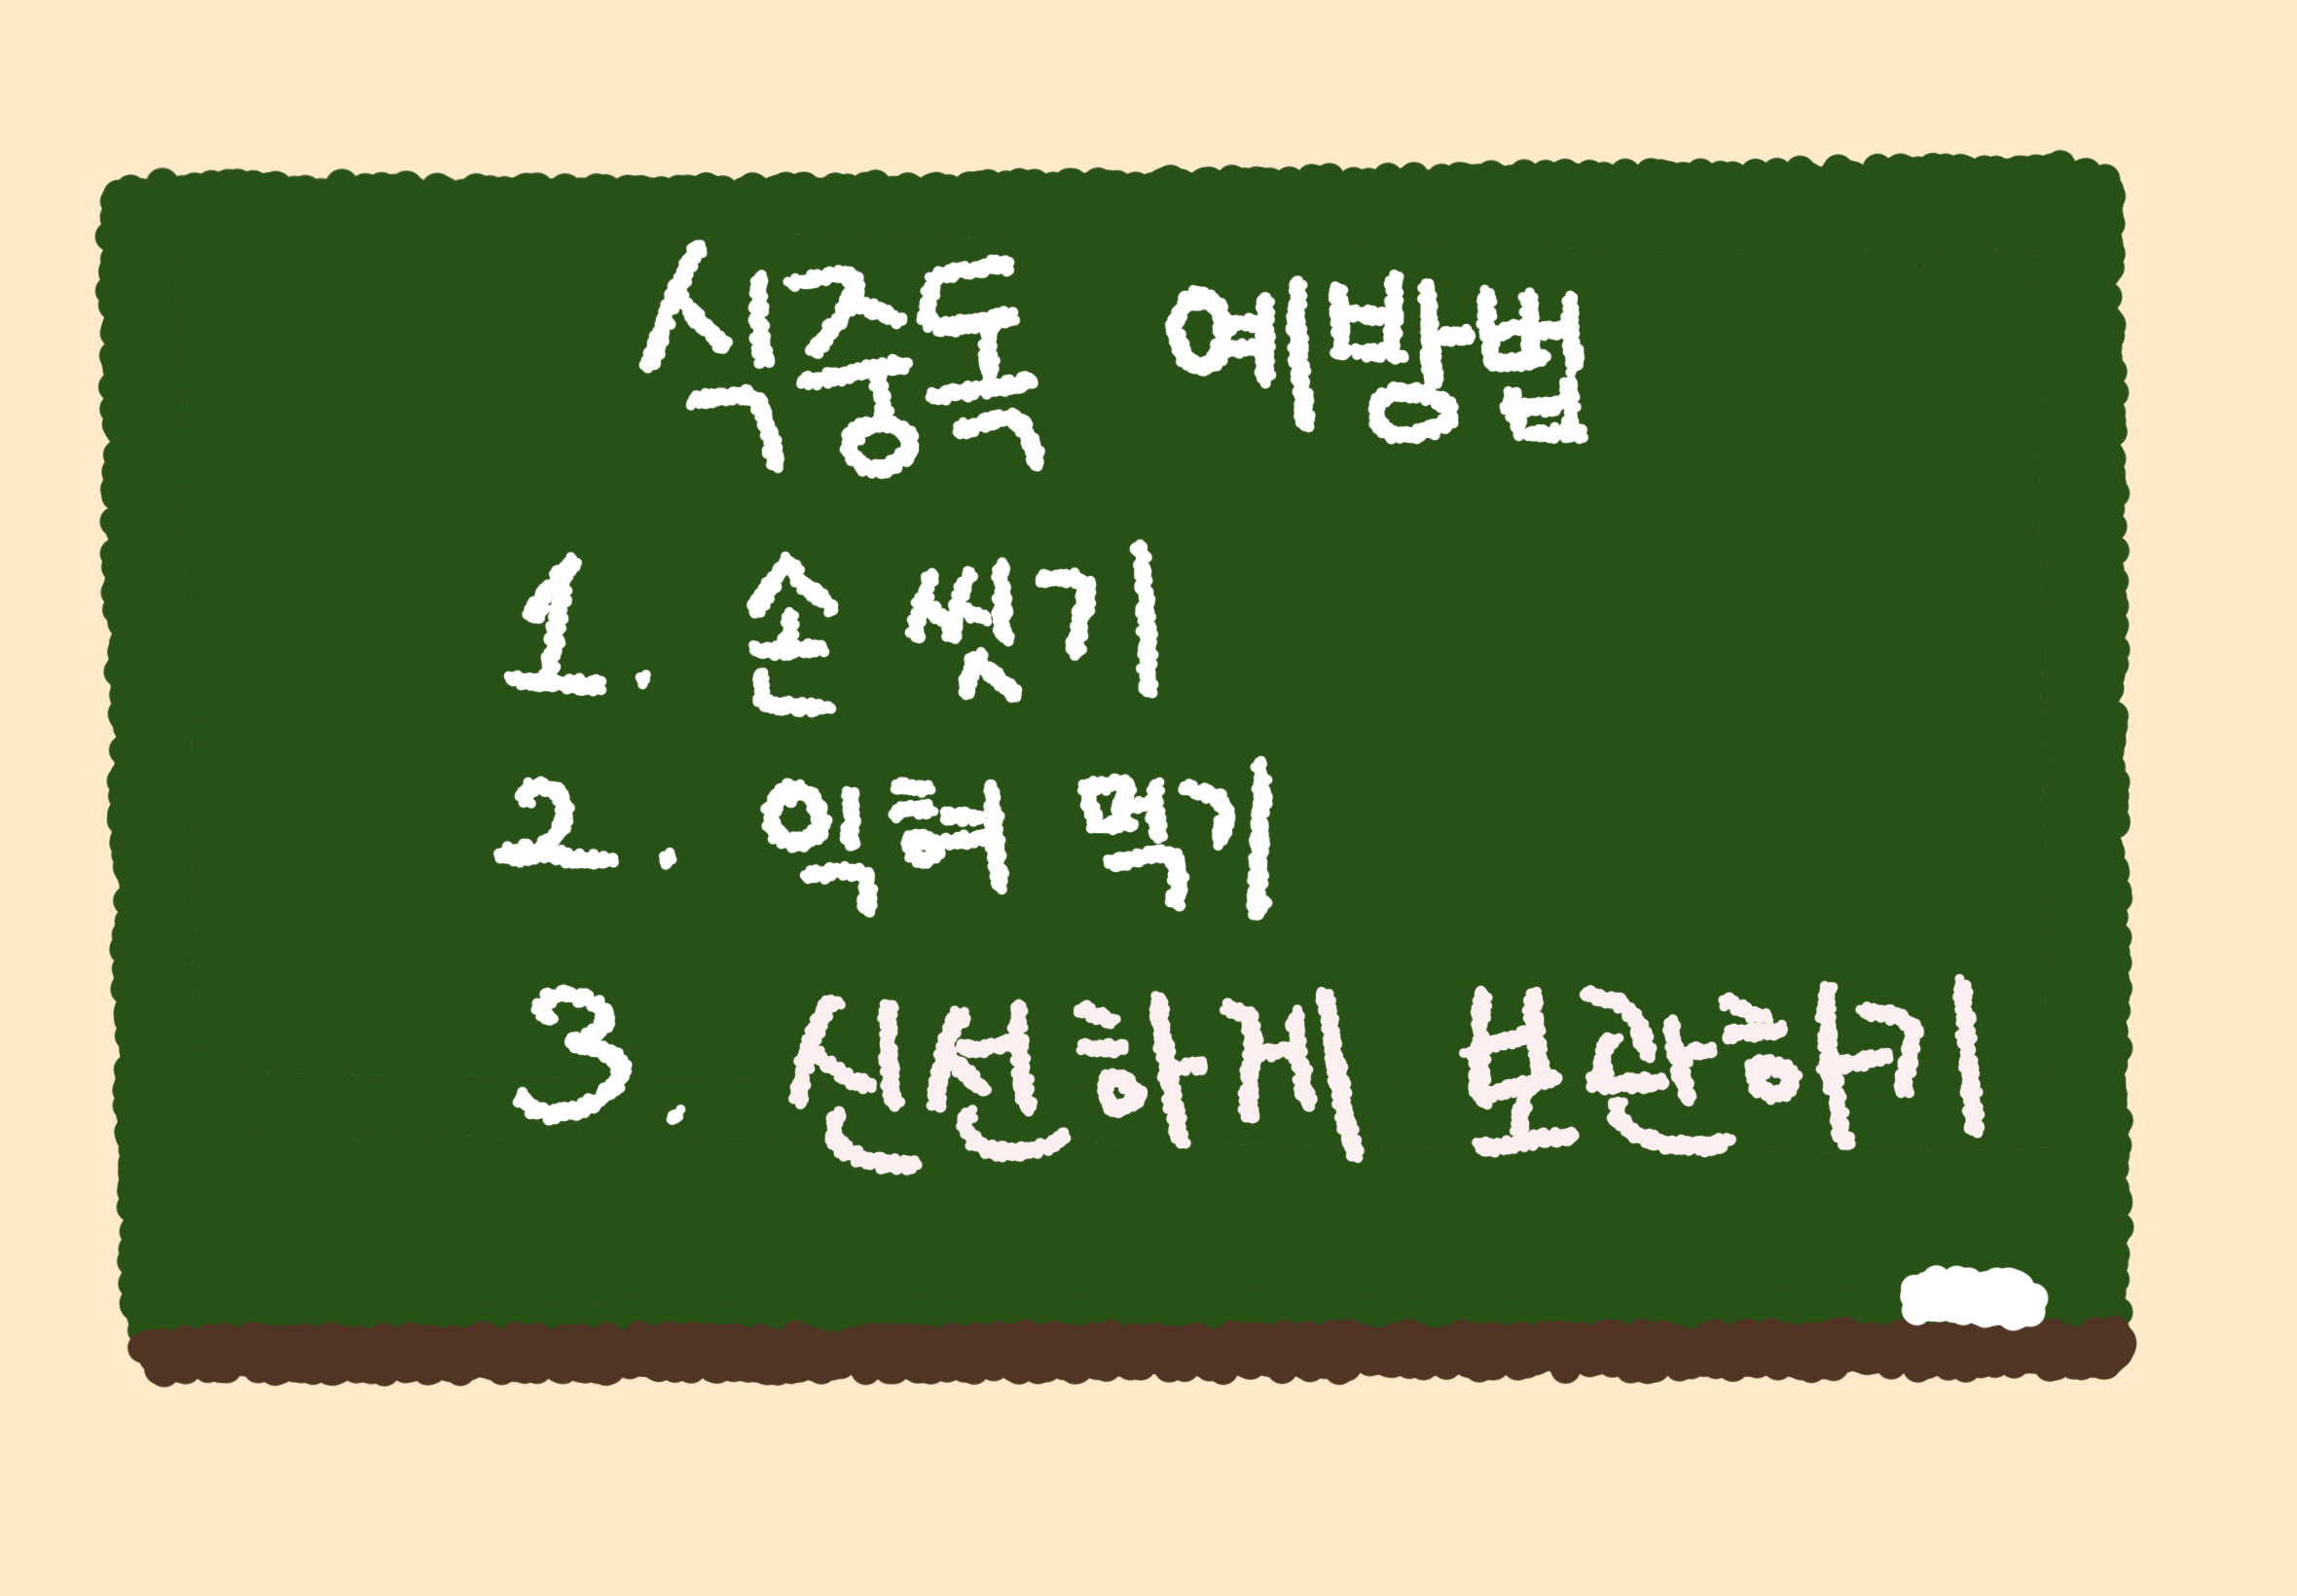 식중독 예방법
1. 손 씻기
2. 익혀 먹기
3. 신선하게 보관하기